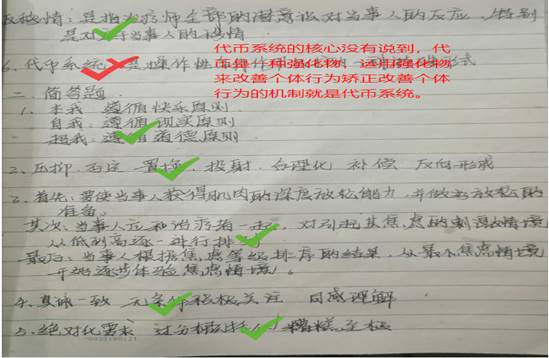 反移情：是指治疗师全部的潜意识对当事人的反应，特别
是对当事人的移情
6. 代币系统 是操作性 形式
代币系统的核心没有说到，代
币是一种强化物，运用强化物
来改善个体行为矫正改善个体
行为的机制就是代币系统。
二 简答题
1. 本我：遵循快乐原则
自我：遵循现实原则
超我：遵循道德原则
2. 压抑 否定 置换 投射 合理化 补偿 反向形成
3. 首先：要使当事人获得肌肉的深度放松能力，并做好放松的
准备。
其次：当事人应和治疗者一起，对引起其焦虑的刺激情境
从低到高逐一进行排
最后：当事人根据焦虑等级排序的结果，从最小焦虑情境
开始逐步体验焦虑情境。
4. 真诚一致 无条件积极关注 同感理解
5. 绝对化要求 过分概括 糟糕至极